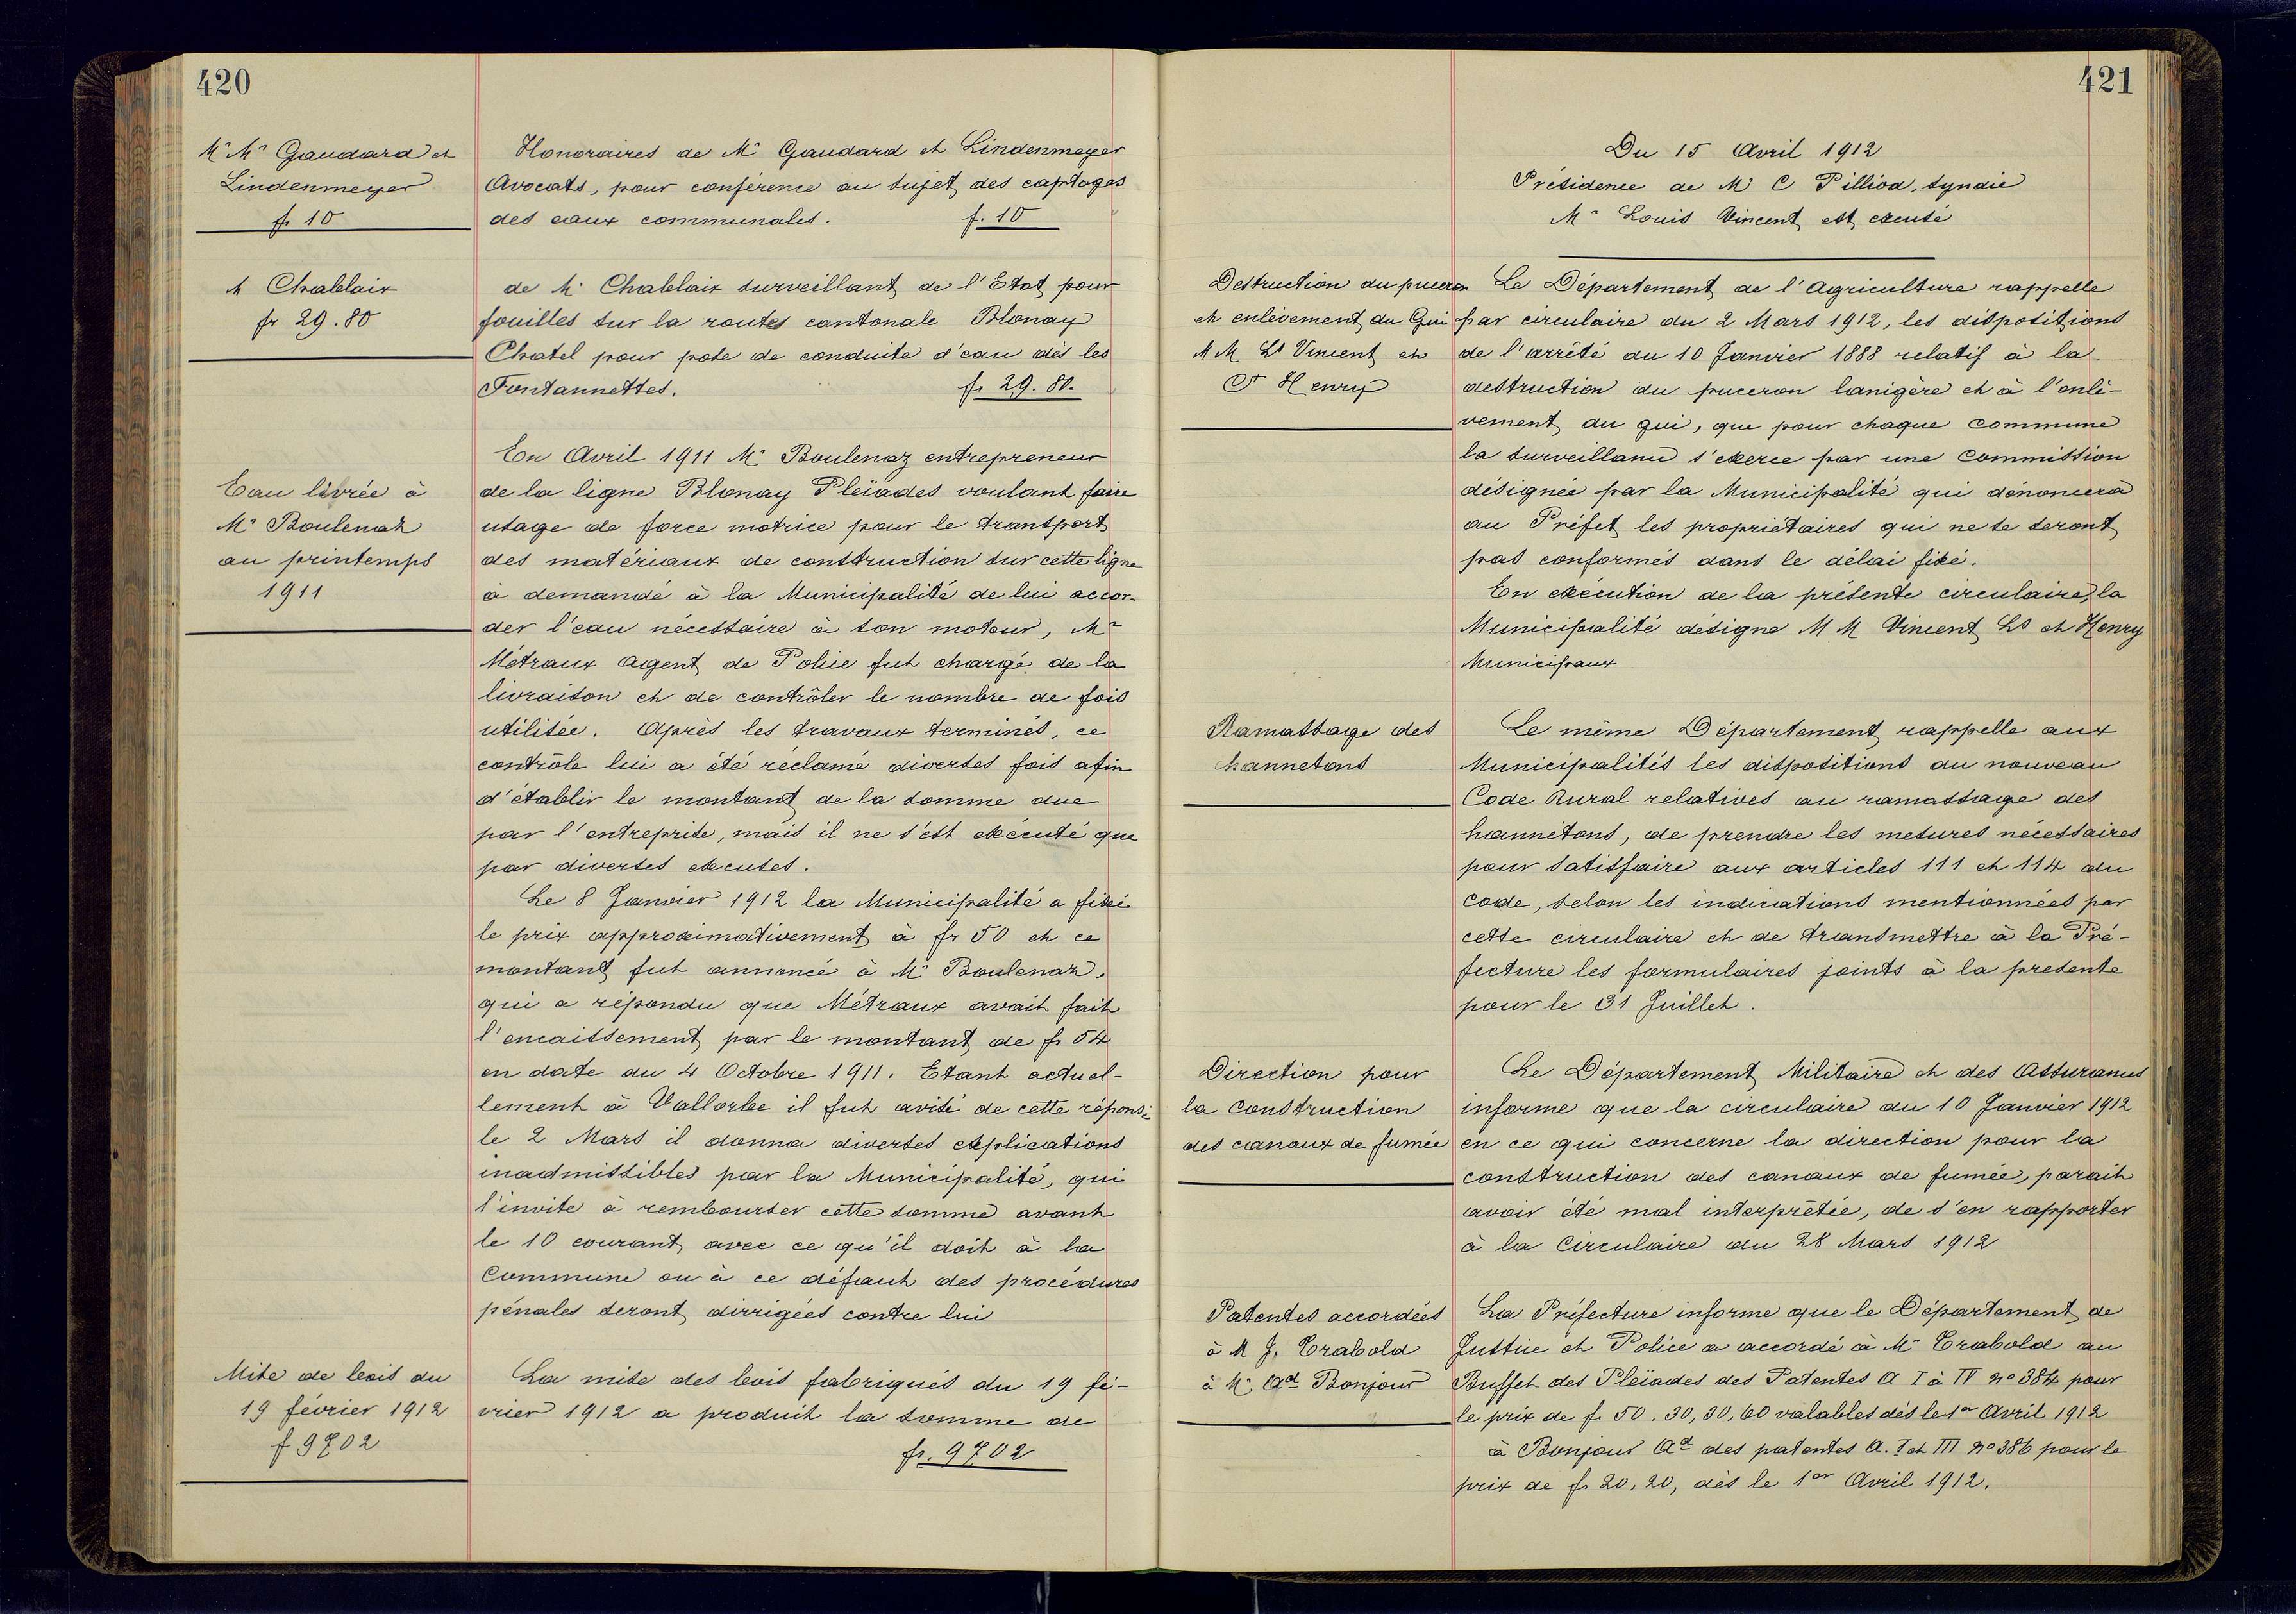 420
Mr Mr Gaudard et
Lindenmeyer
fr 10
Honoraires de Mr Gaudard et Lindenmeyer
Avocats, pour conférence au sujet des captages
des eaux communales. f. 10
M Chablaix
fr 29.80
de Mr Chablaix surveillant de l'Etat pour
fouilles sur la routes cantonale Blonay
Chatel pour pose de conduite d'eau dès les
Fontannettes. fr 29.80.
Eau livrée à
Mr Boulenaz
au printemps
1911
En Avril 1911 Mr Boulenaz entrepreneur
de la ligne Blonay Pleïades voulant faire
usage de force motrice pour le transport
des matériaux de construction sur cette ligne
à demandé à la Municipalité de lui accor-
der l'eau nécessaire à son moteur, Mr
Métraux Agent de Police fut chargé de la
livraison et de contrôler le nombre de fois
utilisée. Après les travaux terminés, ce
contrôle lui a été réclamé diverses fois afin
d'établir le montant de la somme due
par l'entreprise, mais il ne s'est exécuté que
par diverses excuses.
Le 8 Janvier 1912 la Municipalité a fixé
le prix approximativement à fr 50 et ce
montant fut annoncé à Mr Boulenaz,
qui a répondu que Métraux avait fait
l'encaissement par le montant de fr 54
en date du 4 Octobre 1911. Etant actuel-
lement à Vallorbe il fut avisé de cette réponse
le 2 Mars il donna diverses explications
inadmissibles par la Municipalité, qui
l'invite à rembourser cette somme avant
le 10 courant avec ce qu'il doit à la
Commune ou à ce défaut des procédures
pénales seront dirrigées contre lui
Mise de bois du
19 février 1912
f 9702
La mise des bois fabriqués du 19 fé-
vrier 1912 a produit la somme de
fr. 9702
421
Du 15 Avril 1912
Présidence de Mr C Pilliod, syndic
Mr Louis Vincent est excusé
Destruction du puceron
et enlèvement du Gui
M M Ls Vincent et
Henry
Le Département de l'Agriculture rappelle
par circulaire du 2 Mars 1912, les dispositions
de l'arrêté du 10 Janvier 1888 relatif à la
destruction du puceron lanigère et à l'enlè-
vement du gui, que pour chaque commune
la surveillance s'exerce par une Commission
désignée par la Municipalité qui dénoncera
au Préfet les propriétaires qui ne se seront
pas conformés dans le délai fixé.
En exécution de la présente circulaire, la
Municipalité désigne M M Vincent Ls et Henry
Municipaux
Ramassage des
hannetons
Le même Département rappelle aux
Municipalités les dispositions du nouveau
Code Rural relatives au ramassage des
hannetons, de prendre les mesures nécessaires
pour satisfaire aux articles 111 et 114 du
code, selon les indications mentionnées par
cette circulaire et de transmettre à la Pré-
fecture les formulaires joints à la presente
pour le 31 Juillet.
Direction pour
la construction
des canaux de fumée
Le Département Militaire et des Assurances
informe que la circulaire du 10 Janvier 1912
en ce qui concerne la direction pour la
construction des canaux de fumée, parait
avoir été mal interprètée, de s'en rapporter
à la Circulaire du 28 Mars 1912
Patentes accordées
à M J. Erabold
à Mr Ad Bonjour
La Préfecture informe que le Département de
Justice et Police a accordé à Mr Erabold au
Buffet des Pleïades des Patentes A I à IV no 384 pour
le prix de fr 50. 30, 30, 60 valables dès le 1er Avril 1912
à Bonjour Ad des patentes A. I et III no 386 pour le
prix de fr 20, 20, dès le 1er Avril 1912.